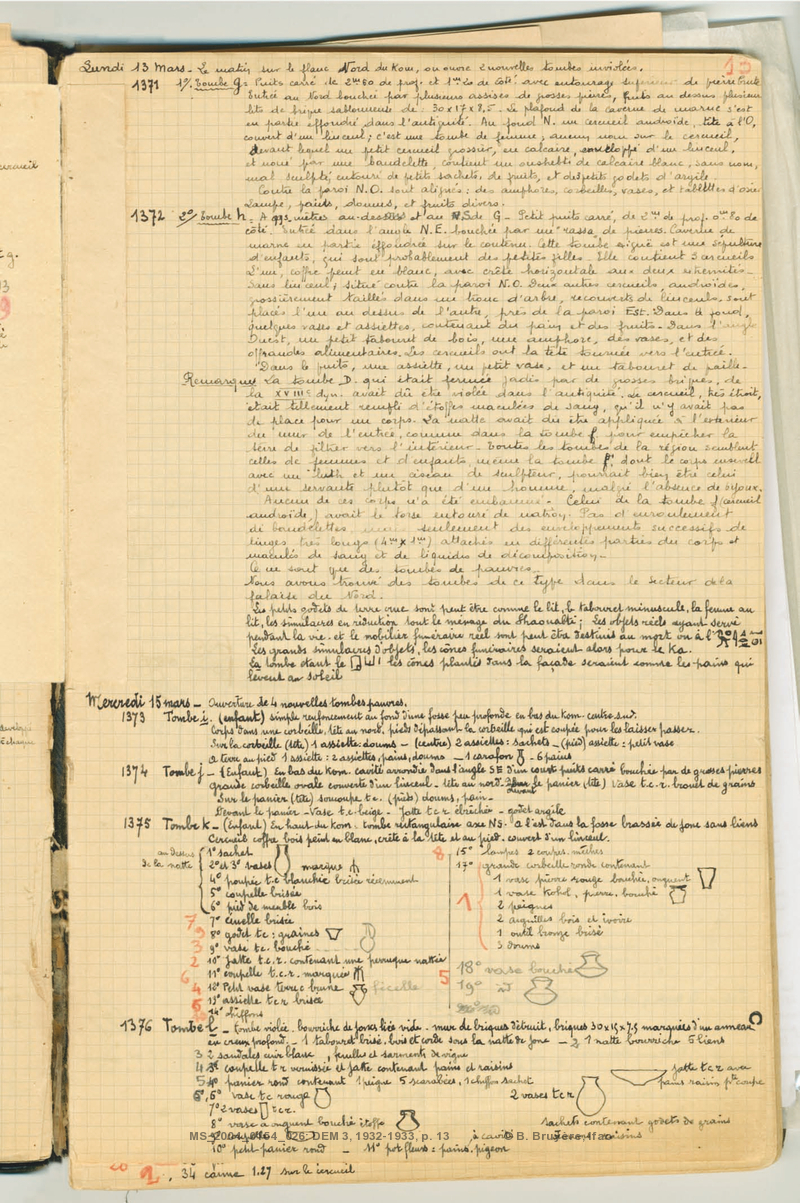 13
Lundi 13 Mars - Le matin sur le flanc Nord du Kom, on ouvre 2 nouvelles tombes inviolées.
1371 1°/ Tombe g: Puits carré de 2m80 de prof. et 1m20 de côté avec entourage supérieur de pierre brute
Entrée au Nord bouchée par plusieurs assises de grosses pierres, puis au dessus plusieurs
lits de brique sablonneuse de 30x17x8,5. Le plafond de la caverne de marne s'est
en partie effondré dans l'antiquité. Au fond N. un cercueil androïde, tête à l'O,
couvert d'un linceul; c'est une tombe de femme; aucun nom sur le cercueil,
devant lequel un petit cercueil grossier, en calcaire, enveloppé d'un linceul,
et noué par une bandelette, contient un oushebti de calcaire blanc, sans nom,
mal sculpté, entouré de petits sachets, de fruits, et des petits godets d'argile.
Contre la paroi N.O. sont alignés: des amphores, corbeilles, vases, et tablettes d'osier
Lampe, pains, doums, et fruits divers.
1372 2°/ Tombe h. A qqs mètres au-dessus et au de G - Petit puits carré, de 2m de prof. 0m80 de
côté. Entrée dans l'angle N.E. bouchée par un rassa de pierres. Caverne de
marne en partie effondrée sur le contenu. Cette tombe exiguë est une sépulture
d'enfants, qui sont probablement des petites filles. Elle contient 3 cercueils
L'un, coffre peint en blanc, avec crête horizontale aux deux extrémités.
Sans linceul; situé contre la paroi N.O. Deux autres cercueils, androïdes,
grossièrement taillés dans un tronc d'arbre, recouverts de linceuls, sont
placés l'un au dessus de l'autre, près de la paroi Est. Dans le fond,
quelques vases et assiettes, contenant du pain et des fruits. Dans l'angle
Ouest, un petit tabouret de bois, une amphore, des vases, et des
offrandes alimentaires. Les cercueils ont la tête tournée vers l'entrée.
Dans le puits, une assiette, un petit vase, et un tabouret de paille.
Remarque La tombe D. qui était fermée jadis par de grosses briques, de
la XVIIIe dyn. avait dû être violée dans l'antiquité. Le cercueil, très étroit,
était tellement rempli d'étoffes maculées de sang, qu'il n'y avait pas
de place pour un corps. La natte avait dû être appliquée à l'extérieur
du mur de l'entrée, comme dans la tombe f pour empêcher la
terre de filtrer vers l'intérieur. Toutes les tombes de la région semblent
celles de femmes et d'enfants même la tombe f, dont le corps enseveli
avec un luth et un ciseau de sculpteur, pourrait bien être celui
d'une servante plutôt que d'un homme, malgré l'absence de bijoux.
Aucun de ces corps n'a été embaumé. Celui de la tombe f (cercueil
androïde) avait le torse entouré de natron. Pas d'enroulement
de bandelettes, mais seulement des enveloppements successifs de
linges très longs (4m x 1m) attachés en différentes parties du corps et
maculés de sang et de liquides de décomposition.
Ce ne sont que des tombes de pauvres.
Nous avons trouvé des tombes de ce type dans le secteur de la
falaise du Nord.
Les petits godets de terre crue sont peut être comme le lit, le tabouret minuscule, la femme au
lit, les simulacres en réduction sont le ménage du Shaouabti; Les objets réels ayant servi
pendant la vie et le mobilier funéraire réel sont peut être destinés au mort ou à l'
Les grands simulacres d'objets, les cônes funéraires seraient alors pour le Ka.
La tombe étant le les cônes plantés dans la façade seraient comme les pains qui
lèvent au soleil
Mercredi 15 mars - Ouverture de 4 nouvelles tombes pauvres.
1373 Tombe i. (enfant) simple renfoncement au fond d'une fosse peu profonde en bas du Kom. centre-sud.
Corps dans une corbeille, tête au nord, pieds dépassant la corbeille qui est coupée pour les laisser passer.
Sur la corbeille (tête) 1 assiette: doums - (centre) 2 assiettes: sachets - (pied) assiette: petit vase
A terre au pied 1 assiette: 2 assiettes, pains, doums - 1 carafon - 6 pains
1374 Tombe j - (Enfant) En bas du Kom. cavité arrondie dans l'angle SE d'un court puits carré bouchée par de grosses pierres
Grande corbeille ovale couverte d'un linceul - tête au nord. devant le panier (tête) vase t.c.r. baquet de grains
Sur le panier (tête) soucoupe t.c. (pieds) doums, pain -
Devant le panier - Vase t.c. beige - Jatte t.c.r. ébréchée - godet argile
1375 Tombe K - (Enfant) En haut du Kom: tombe rectangulaire axe NS. à l'est dans la fosse brassée de jonc sans liens
Cercueil coffre bois peint en blanc, crête à la tête et au pied. couvert d'un linceul.
au dessus de la natte
1° sachet
2° et 3° vases marque
4° poupée t.c. blanchie brisée récemment
5° coupelle brisée
6° pied de meuble bois
7 7° écuelle brisée
8° godet t.c: graines
3 9° vase t.c. bouché
2 10° Jatte t.c.r. contenant une perruque nattée
6 11° coupelle t.c.r. marquée
4 12° Petit vase terre c brune ficelle
5 13° assiette t.c.r brisée
14° chiffons
8 15° lampes 2 coupes. mèches
17° grande corbeille ronde contenant
1 1 vase pierre rouge bouchée, onguent
1 vase Kohol, pierre, bouché
2 peignes
2 aiguilles bois et ivoire
1 outil bronze brisé
3 doums
5 18° vase bouché
19° id
1376 Tombe l - tombe violée. bourriche de joncs liée vide - mur de briques détruit, briques 30x15x7.5 marquées d'un anneau
en creux profond. - 1 tabouret brisé. bois et corde sous la natte de jonc - 2 1 natte bourriche 5 liens
3 2 sandales cuir blanc, feuilles et sarments de vigne
4 coupelle t.r vernissée et jatte contenant pains et raisins
5 panier rond contenant 1 peigne 5 scarabées, 1 chiffon sachet
6° vase t.c rouge
7° 2 vases t.c.r.
8° vase à onguent bouché étoffe
10° petit panier rond - 11° pot fleurs: pains, pigeon
2 vases t.c.r
jatte t.c.r avec
pains raisins pte coupe
sachets contenant godets de grains
MS_2004_0154_026, DEM 3, 1932-1933, p. 13 © B. Bruyère, Ifao
2, 34 canne 1.27 sur le cercueil